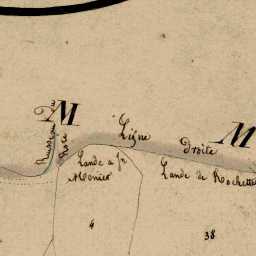 M
M
Ligne droite
Lande a Jn
Monier
Lande de Rochette
4
38